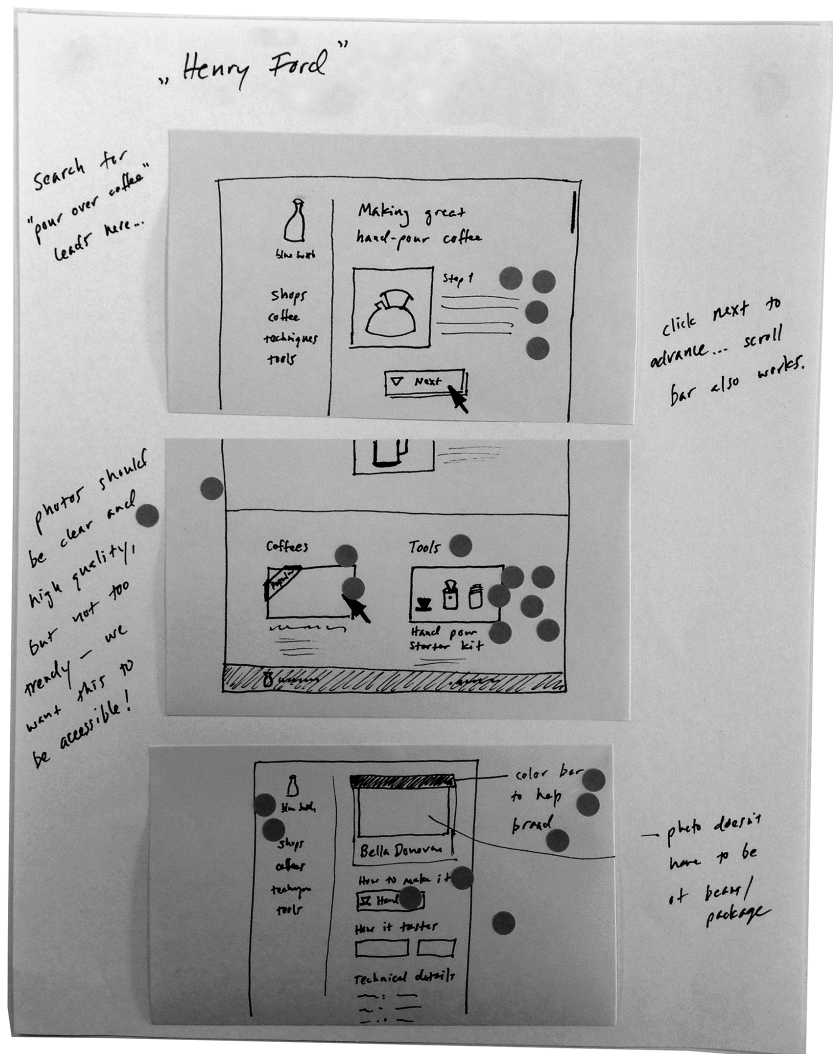 „Henry Ford"
Search for
"pour over coffee"
leads here...
blue bottle
shops
coffee
techniques
tools
Making great
hand-pour coffee
Step 1
Next
click next to
advance... scroll
bar also works.
photos should
be clear and
high quality,
but not too
trendy – we
want this to
be accessible!
Coffees
Popular
Tools
Hand pour
Starter kit
blue bottle
shops
coffees
tools
Bella Donovan
How to make it
Hand
How it tastes
Technical details
color bar
to help
brand
– photo doesn't
have to be
of beans/
package